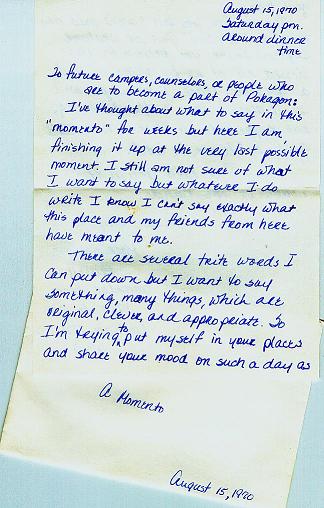 August 15, 1970
Saturday pm.
around dinner
time
To future campers, counselors, or people who
are to become a part of Pokagon:
I've thought about what to say in this
"momento" for weeks but here I am,
finishing it up at the very last possible
moment. I still am not sure of what
I want to say but whatever I do
write I know I can't say exactly what
this place and my friends from here
have meant to me.
There are several trite words I
can put down but I want to say
something, many things, which are
original, clever, and appropriate. So
I'm trying to put myself in your places
and share your mood on such a day as
A Momento
August 15, 1970